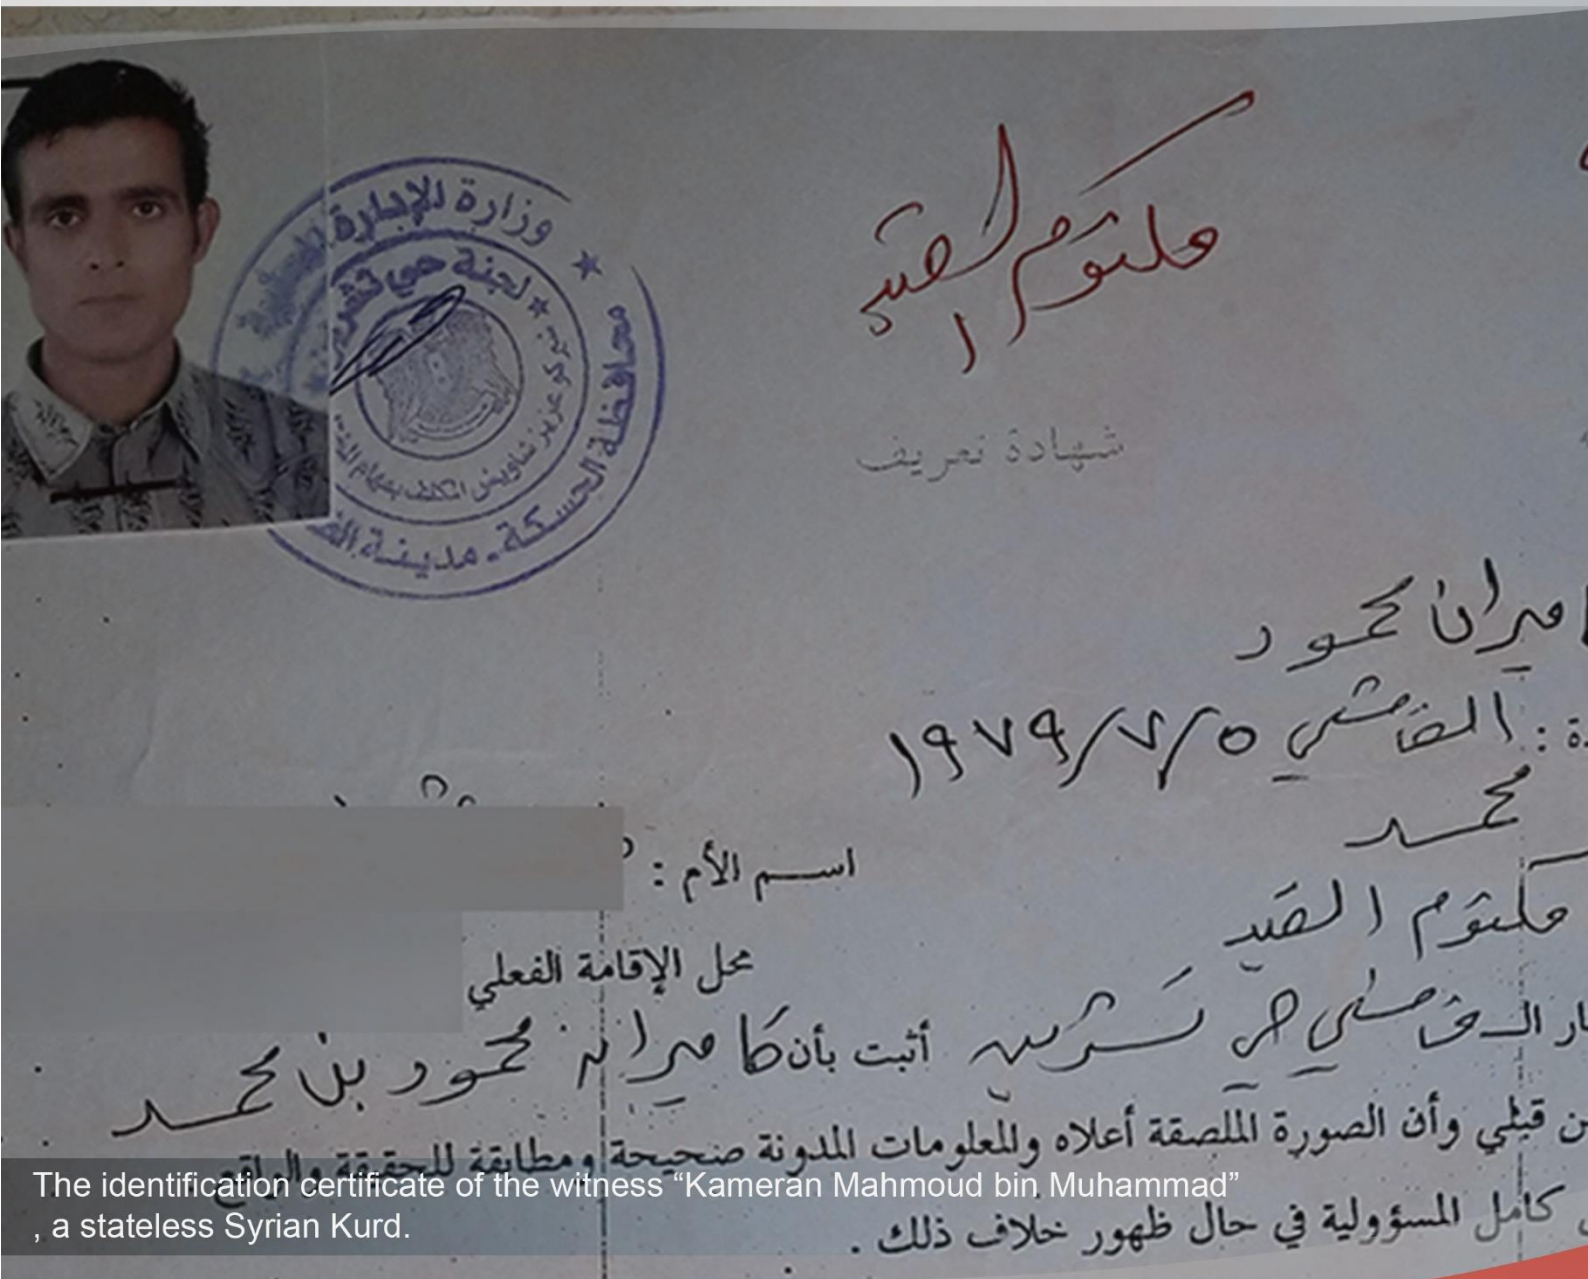 مكتوم القيد
شهادة تعريف
وزارة الإدارة المحلية
محافظة الحسكة - مدينة
لجنة حي تشرين
عزيز شاويش المكلف بمهام
ميران محمود
القامشلي ١٩٧٩/٧/٥
محمد
اسم الأم :
مكتوم القيد
محل الإقامة الفعلي
حي تشرين أثبت بأن كاميران محمود بن محمد
قبلي وأن الصورة الملصقة أعلاه والمعلومات المدونة صحيحة ومطابقة للحقيقة والواقع .
كامل المسؤولية في حال ظهور خلاف ذلك .
The identification certificate of the witness “Kameran Mahmoud bin Muhammad”
, a stateless Syrian Kurd.